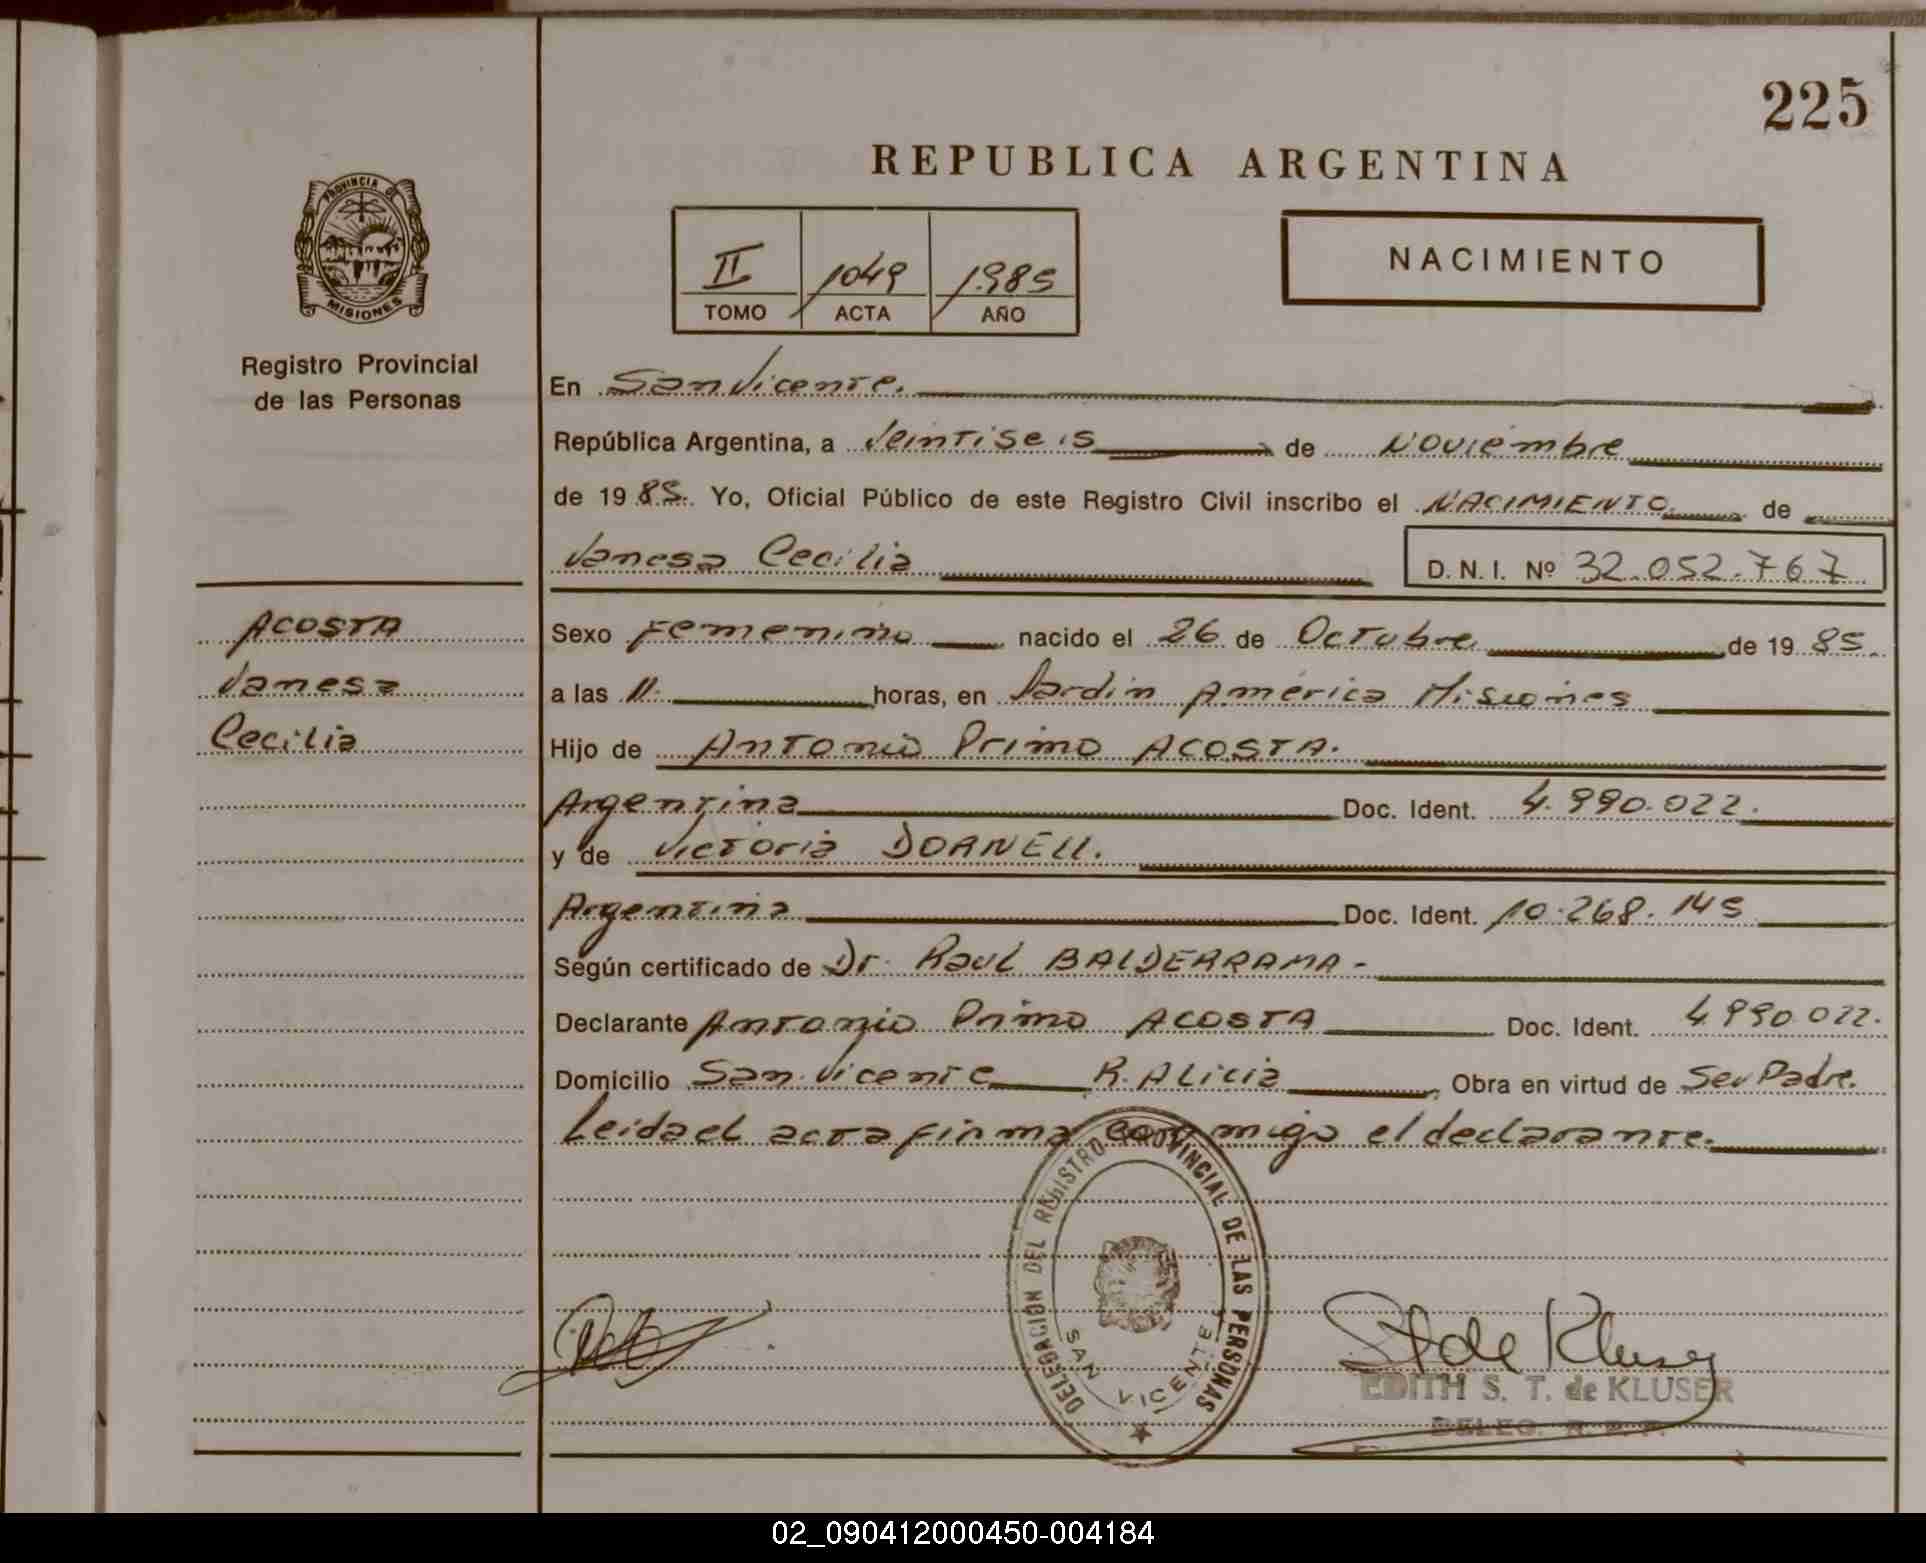 225
REPUBLICA ARGENTINA
PROVINCIA DE
MISIONES
II 1049 1985
TOMO ACTA AÑO
NACIMIENTO
Registro Provincial
de las Personas
En San Vicente.
República Argentina, a Veintiseis de Noviembre
de 19 85. Yo, Oficial Público de este Registro Civil inscribo el NACIMIENTO de
Vanesa Cecilia D. N. I. Nº 32.052.767
ACOSTA
Vanesa
Cecilia
Sexo Femenino nacido el 26 de Octubre de 19 85.
a las 11. horas, en Jardin América Misiones
Hijo de Antonio Primo ACOSTA.
Argentina Doc. Ident. 4.990.022.
y de Victoria DORNELL.
Argentina Doc. Ident. 10.268.145
Según certificado de Dr. Raul BALDERRAMA -
Declarante Antonio Primo ACOSTA Doc. Ident. 4.990.022.
Domicilio San Vicente R. Alicia Obra en virtud de Ser Padre.
Leida el acta firma conmigo el declarante.
DELEGACION DEL REGISTRO PROVINCIAL DE LAS PERSONAS
SAN VICENTE
St de Kluser
EDITH S. T. de KLUSER
DELEG. R. P. P.
02_090412000450-004184